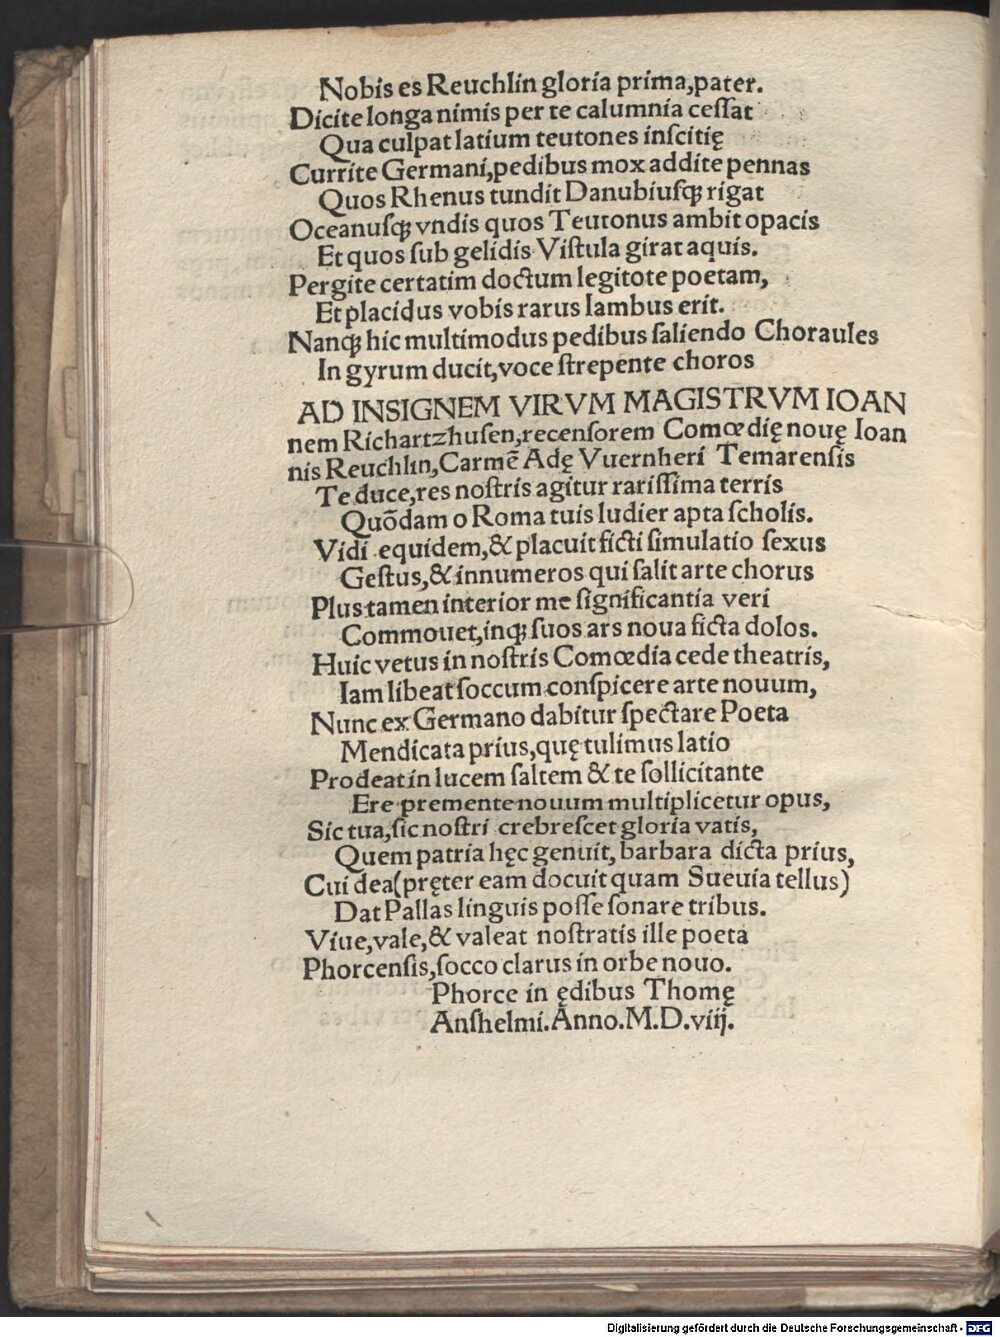 Nobis es Reuchlin gloria prima,pater.
Dicite longa nimis per te calumnia ceſſat
Qua culpat latium teutones inſcitię
Currite Germani,pedibus mox addite pennas
Quos Rhenus tundit Danubiuſqꝫ rigat
Oceanuſqꝫ vndis quos Teutonus ambit opacis
Et quos ſub gelidis Viſtula girat aquis.
Pergite certatim doctum legitote poetam,
Et placidus vobis rarus Iambus erit.
Nanqꝫ hic multimodus pedibus ſaliendo Choraules
In gyrum ducit,voce ſtrepente choros
AD INSIGNEM VIRVM MAGISTRVM IOAN
nem Richartzhuſen,recenſorem Comœdię nouę Ioan
nis Reuchlin,Carmē Adę Vuernheri Temarenſis
Te duce,res noſtris agitur rariſſima terris
Quōdam o Roma tuis ludier apta ſcholis.
Vidi equidem,&placuit ficti ſimulatio ſexus
Geſtus,&innumeros qui ſalit arte chorus
Plus tamen interior me ſignificantia veri
Commouet,inqꝫ ſuos ars noua ficta dolos.
Huic vetus in noſtris Comœdia cede theatris,
Iam libeat ſoccum conſpicere arte nouum,
Nunc ex Germano dabitur ſpectare Poeta
Mendicata prius,quę tulimus latio
Prodeat in lucem ſaltem & te ſollicitante
Ere premente nouum multiplicetur opus,
Sic tua,ſic noſtri crebreſcet gloria vatis,
Quem patria hęc genuit, barbara dicta prius,
Cui dea(pręter eam docuit quam Sueuia tellus)
Dat Pallas linguis poſſe ſonare tribus.
Viue,vale,& valeat noſtratis ille poeta
Phorcenſis,ſocco clarus in orbe nouo.
Phorce in ędibus Thomę
Anſhelmi.Anno.M.D.viij.
Digitalisierung gefördert durch die Deutsche Forschungsgemeinschaft - DFG